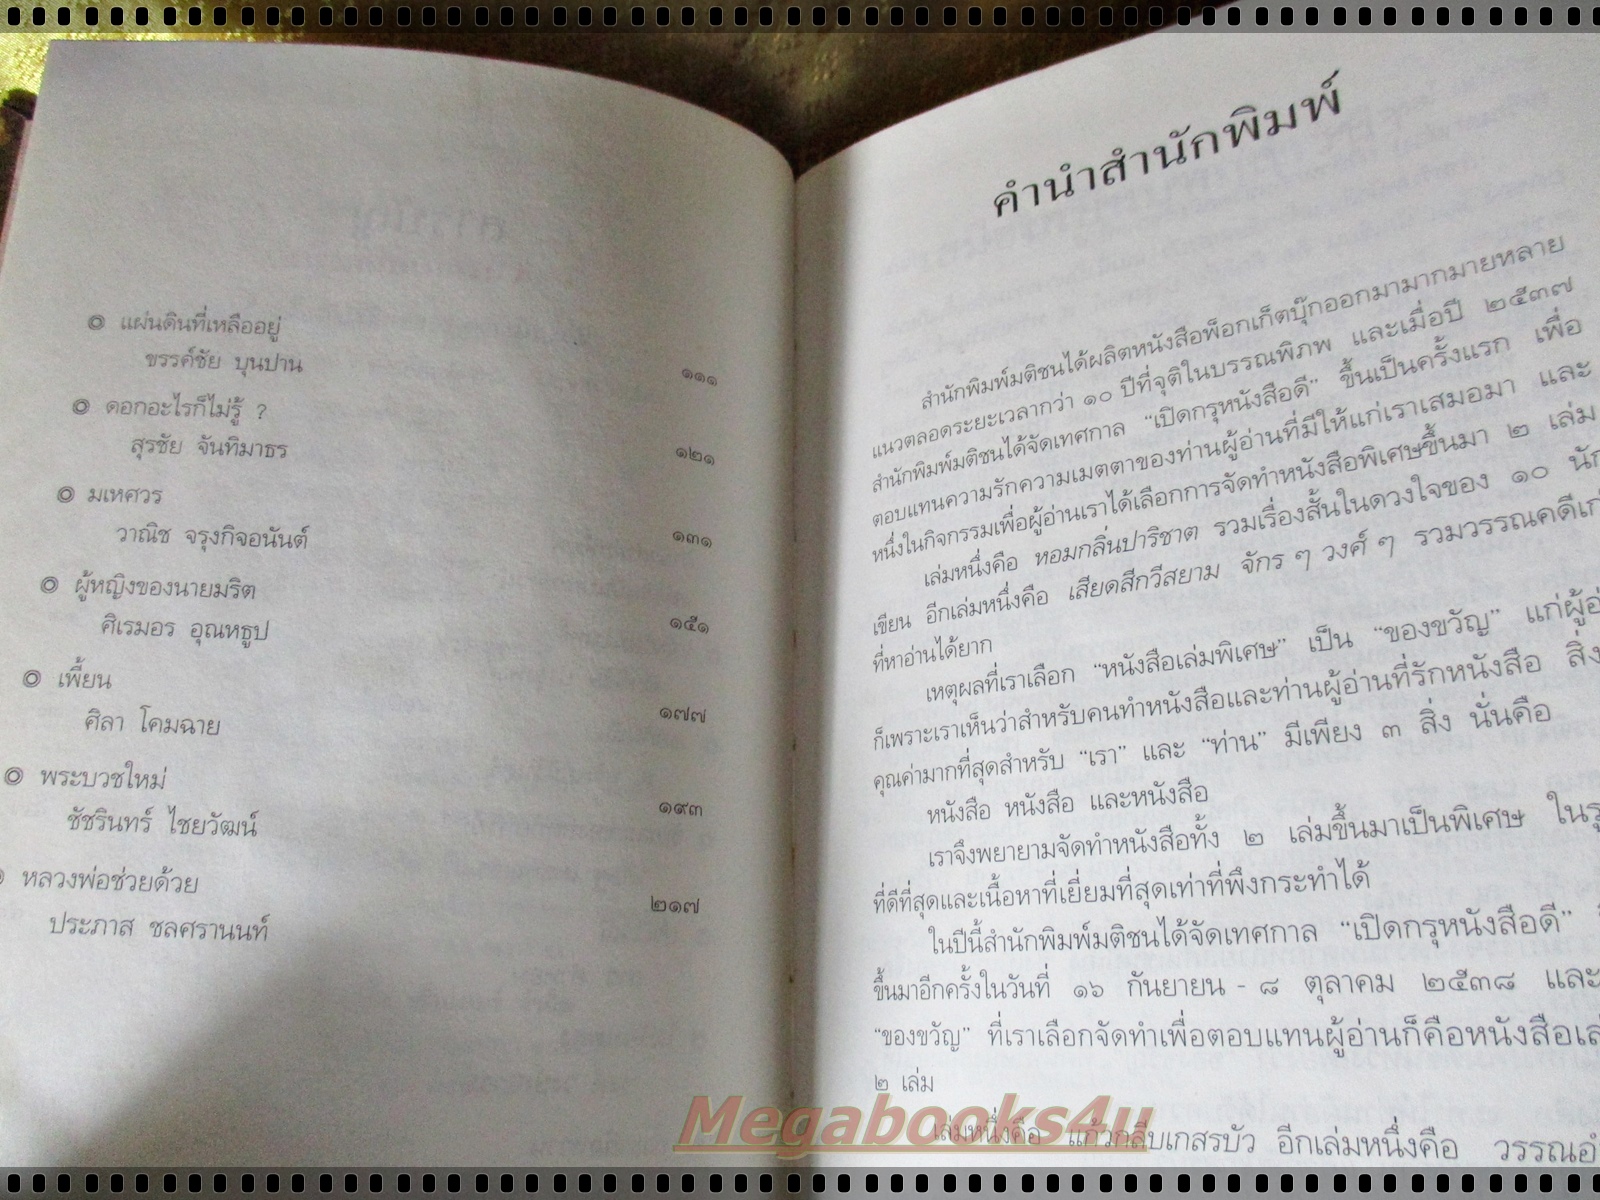 ๏ แผ่นดินที่เหลืออยู่
ขรรค์ชัย บุนปาน ๑๑๑
๏ ดอกอะไรก็ไม่รู้ ?
สุรชัย จันทิมาธร ๑๒๑
๏ มเหศวร
วาณิช จรุงกิจอนันต์ ๑๓๑
๏ ผู้หญิงของนายมริต
ศิเรมอร อุณหธูป ๑๕๑
๏ เพี้ยน
ศิลา โคมฉาย ๑๗๗
๏ พระบวชใหม่
ชัชรินทร์ ไชยวัฒน์ ๑๙๓
หลวงพ่อช่วยด้วย
ประภาส ชลศรานนท์ ๒๑๗
คำนำสำนักพิมพ์
สำนักพิมพ์มติชนได้ผลิตหนังสือพ็อกเก็ตบุ๊กออกมามากมายหลาย
แนวตลอดระยะเวลากว่า ๑๐ ปีที่จุติในบรรณพิภพ และเมื่อปี ๒๕๓๗
สำนักพิมพ์มติชนได้จัดเทศกาล “เปิดกรุหนังสือดี” ขึ้นเป็นครั้งแรก เพื่อ
ตอบแทนความรักความเมตตาของท่านผู้อ่านที่มีให้แก่เราเสมอมา และ
หนึ่งในกิจกรรมเพื่อผู้อ่านเราได้เลือกการจัดทำหนังสือพิเศษขึ้นมา ๒ เล่ม
เล่มหนึ่งคือ หอมกลิ่นปาริชาต รวมเรื่องสั้นในดวงใจของ ๑๐ นัก
เขียน อีกเล่มหนึ่งคือ เสียดสีกวีสยาม จักร ๆ วงศ์ ๆ รวมวรรณคดี
ที่หาอ่านได้ยาก
เหตุผลที่เราเลือก “หนังสือเล่มพิเศษ” เป็น “ของขวัญ” แก่
ก็เพราะเราเห็นว่าสำหรับคนทำหนังสือและท่านผู้อ่านที่รักหนังสือ สิ่ง
คุณค่ามากที่สุดสำหรับ “เรา” และ “ท่าน” มีเพียง ๓ สิ่ง นั่นคือ
หนังสือ หนังสือ และหนังสือ
เราจึงพยายามจัดทำหนังสือทั้ง ๒ เล่มขึ้นมาเป็นพิเศษ ใน
ที่ดีที่สุดและเนื้อหาที่เยี่ยมที่สุดเท่าที่พึงกระทำได้
ในปีนี้สำนักพิมพ์มติชนได้จัดเทศกาล “เปิดกรุหนังสือดี”
ขึ้นมาอีกครั้งในวันที่ ๑๖ กันยายน - ๘ ตุลาคม ๒๕๓๘ และ
“ของขวัญ” ที่เราเลือกจัดทำเพื่อตอบแทนผู้อ่านก็คือหนังสือ
๒ เล่ม
เล่มหนึ่งคือ แก้วกลีบเกสรบัว อีกเล่มหนึ่งคือ
Megabooks4u